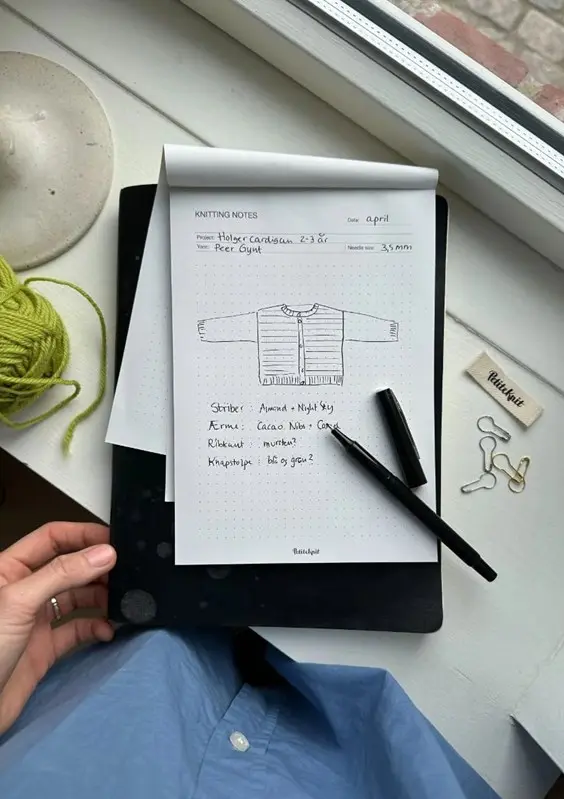 KNITTING NOTES
Date: april
Project: Holger Cardigan 2-3 år
Yarn: Peer Gynt
Needle size: 3,5 mm
Striber : Almond + Night Sky
Ærme : Cacao Nibs +
Ribkant :
Knapstolpe : blå og grøn?
PetiteKnit
PetiteKnit